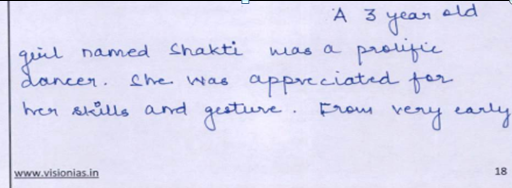 A 3 year old
girl named Shakti was a prolific
dancer. She was appreciated for
her skills and gesture. From very early
www.visionias.in
18